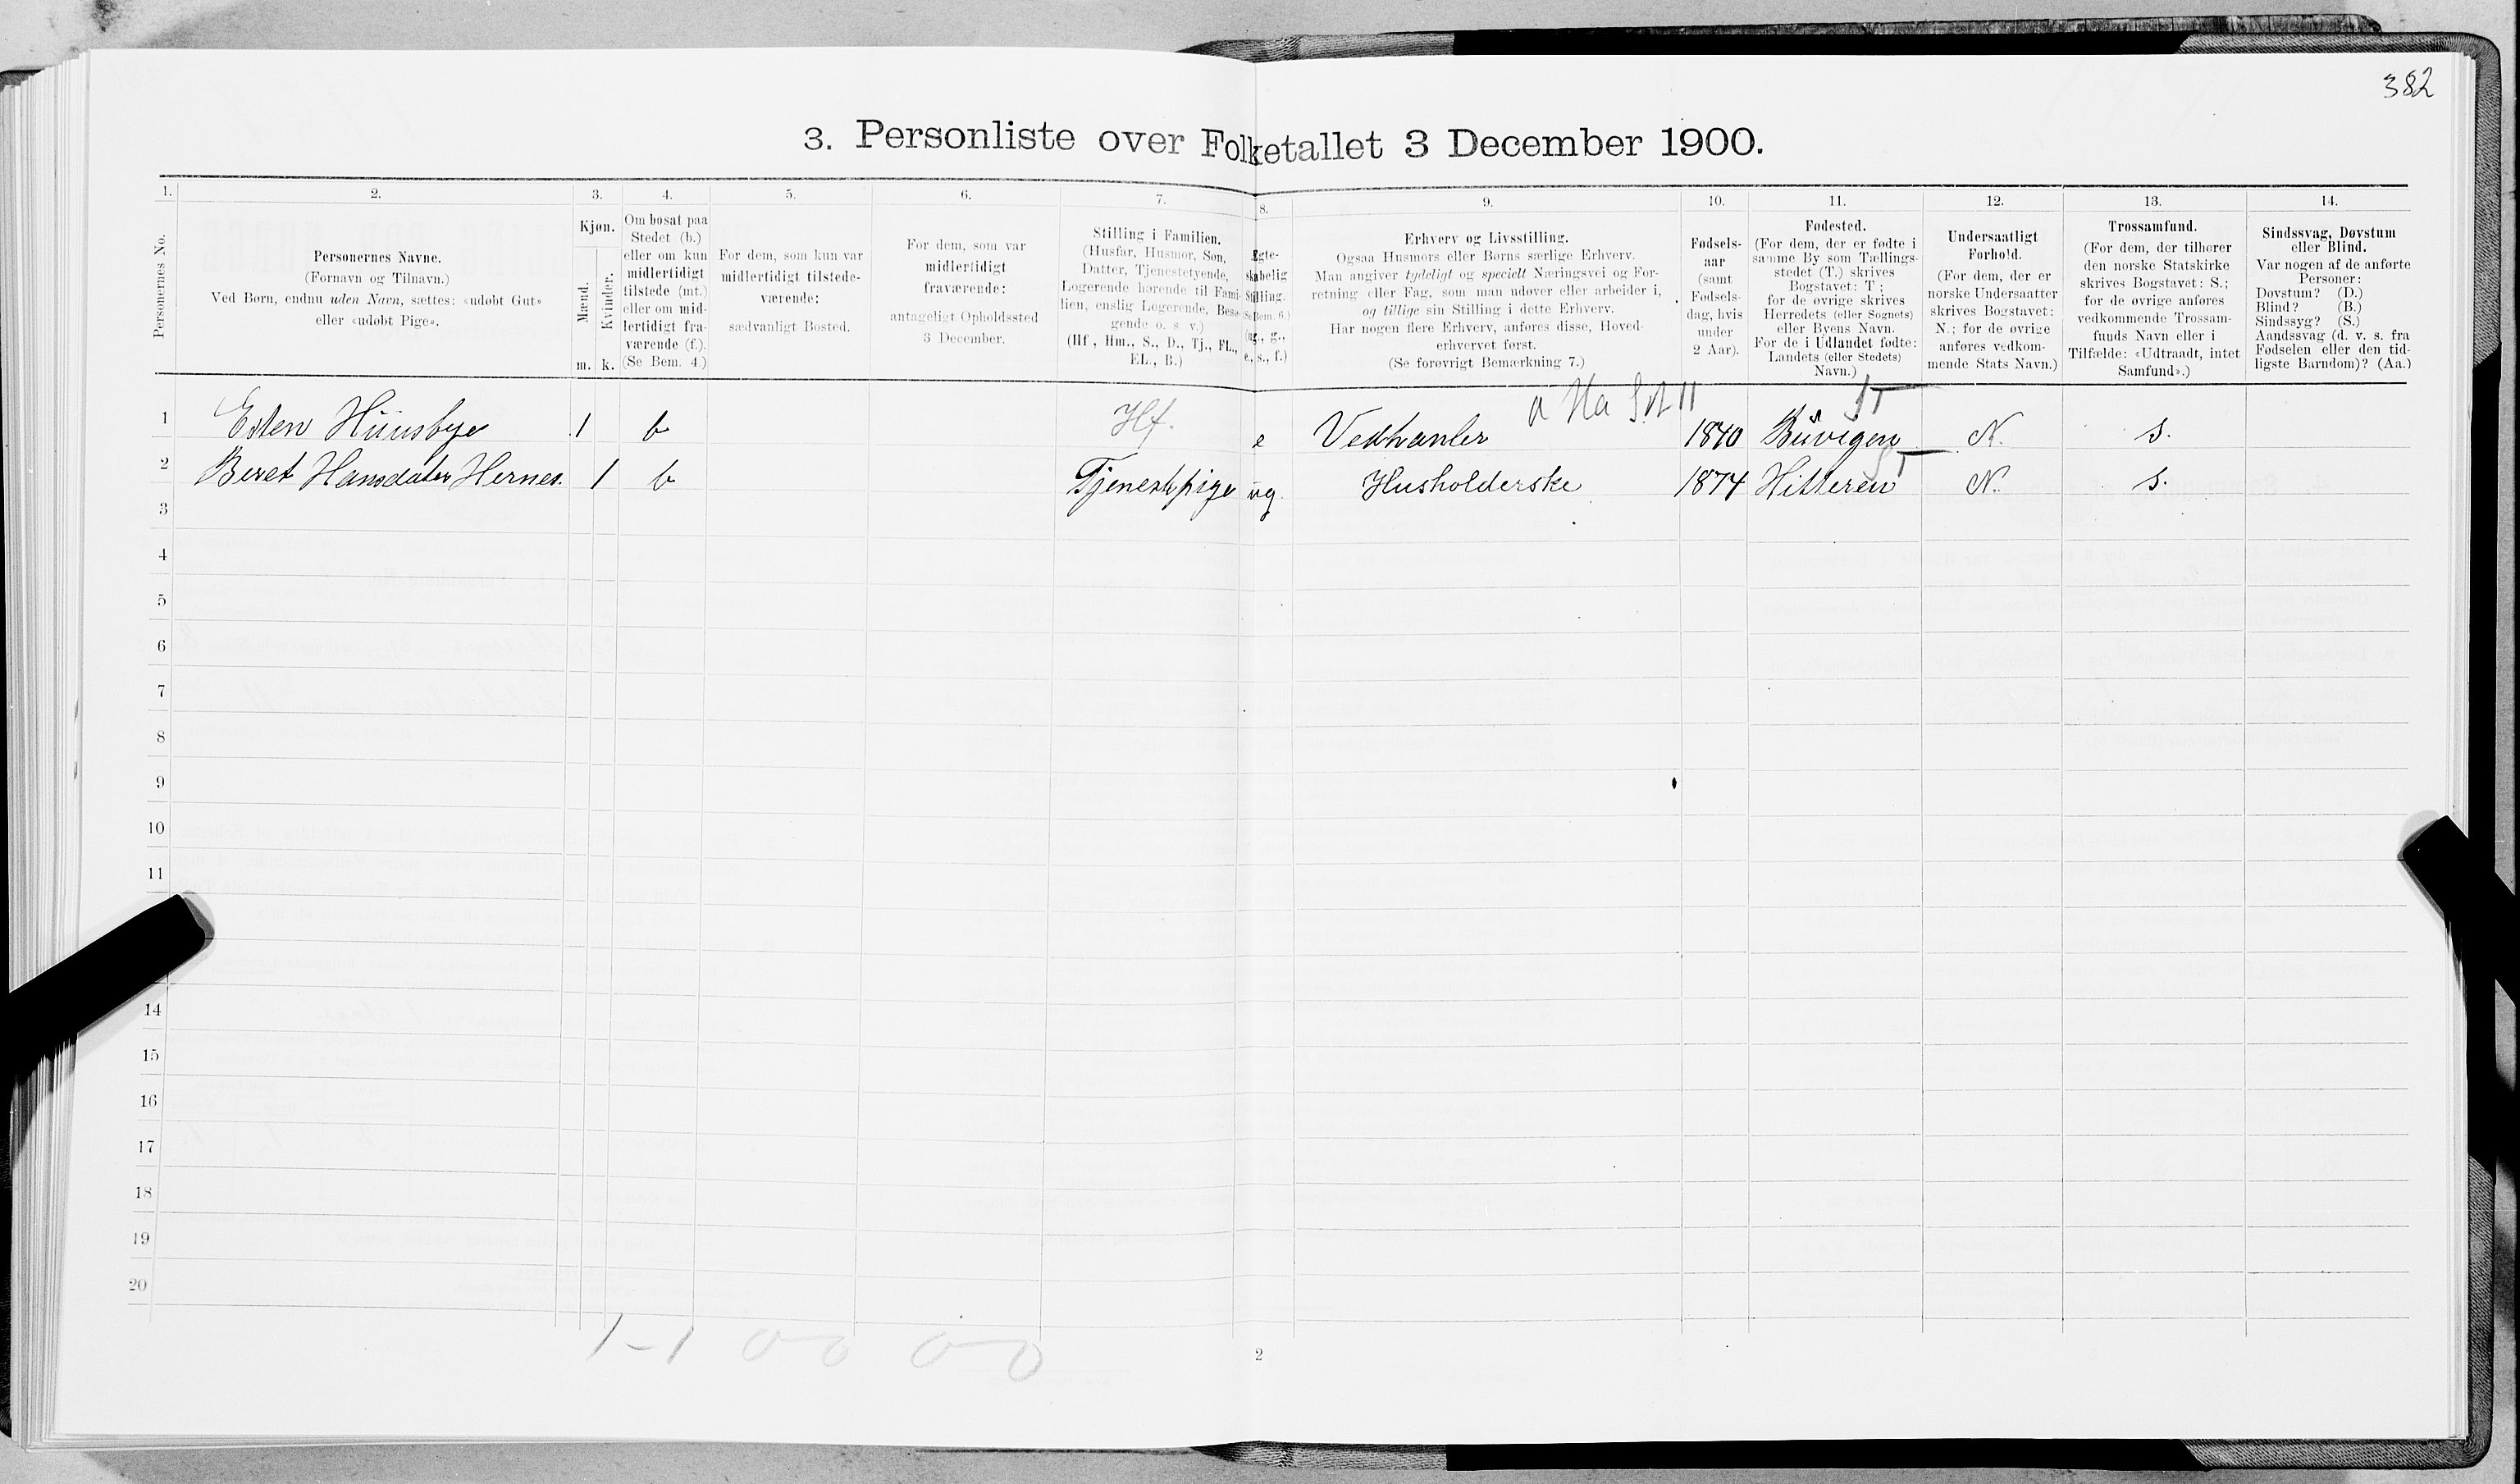 382
3. Personliste over Folketallet 3 December 1900.
1. 2. 3. 4. 5. 6. 7. 8. 9. 10. 11. 12. 13. 14.
Personernes No.
Personernes Navne.
(Fornavn og Tilnavn.)
Ved Børn, endnu uden Navn, sættes: «udøbt Gut»
eller «udøbt Pige».
Kjøn.
Mænd.
Kvinder.
m. k.
Om bosat paa
Stedet (b.)
eller om kun
midlertidigt
tilstede (mt.)
eller om mid-
lertidigt fra-
værende (f.).
(Se Bem. 4.)
For dem, som kun var
midlertidigt tilstede-
værende:
sædvanligt Bosted.
For dem, som var
midlertidigt
fraværende:
antageligt Opholdssted
3 December.
Stilling i Familien.
(Husfar, Husmor, Søn,
Datter, Tjenestetyende,
Logerende hørende til Fami-
lien, enslig Logerende, Besø-
gende o. s. v.)
(Hf., Hm., S., D., Tj., FL.,
EL., B.)
Egte-
skabelig
Stilling.
(Se Bem. 6.)
(ug., g.,
e., s., f.)
Erhverv og Livsstilling.
Ogsaa Husmors eller Børns særlige Erhverv.
Man angiver tydeligt og specielt Næringsvei og For-
retning eller Fag, som man udøver eller arbeider i,
og tillige sin Stilling i dette Erhverv.
Har nogen flere Erhverv, anføres disse, Hoved-
erhvervet først.
(Se forøvrigt Bemærkning 7.)
Fødsels-
aar
(samt
Fødsels-
dag, hvis
under
2 Aar).
Fødested.
(For dem, der er fødte i
samme By som Tællings-
stedet (T.) skrives
Bogstavet: T;
for de øvrige skrives
Herredets (eller Sognets)
eller Byens Navn.
For de i Udlandet fødte:
Landets (eller Stedets)
Navn.)
Undersaatligt
Forhold.
(For dem, der er
norske Undersaatter
skrives Bogstavet:
N.; for de øvrige
anføres vedkom-
mende Stats Navn.)
Trossamfund.
(For dem, der tilhører
den norske Statskirke
skrives Bogstavet: S.;
for de øvrige anføres
vedkommende Trossam-
funds Navn eller i
Tilfælde: «Udtraadt, intet
Samfund».)
Sindssvag, Døvstum
eller Blind.
Var nogen af de anførte
Personer:
Døvstum? (D.)
Blind? (B.)
Sindssyg? (S.)
Aandssvag (d. v. s. fra
Fødselen eller den tid-
ligste Barndom)? (Aa.)
ST
1 Esten Hüusbye 1 b Hf. e Vedhanler 1840 Büvigen N. S.
ST
2 Beret Hansdater Hernes. 1 b Tjenestpige ug. Husholderske 1874 Hitteren N. S.
3
4
5
6
7
8
9
10
11
14
15
16
17
18
19
20
1-1 0-0 0-0
2